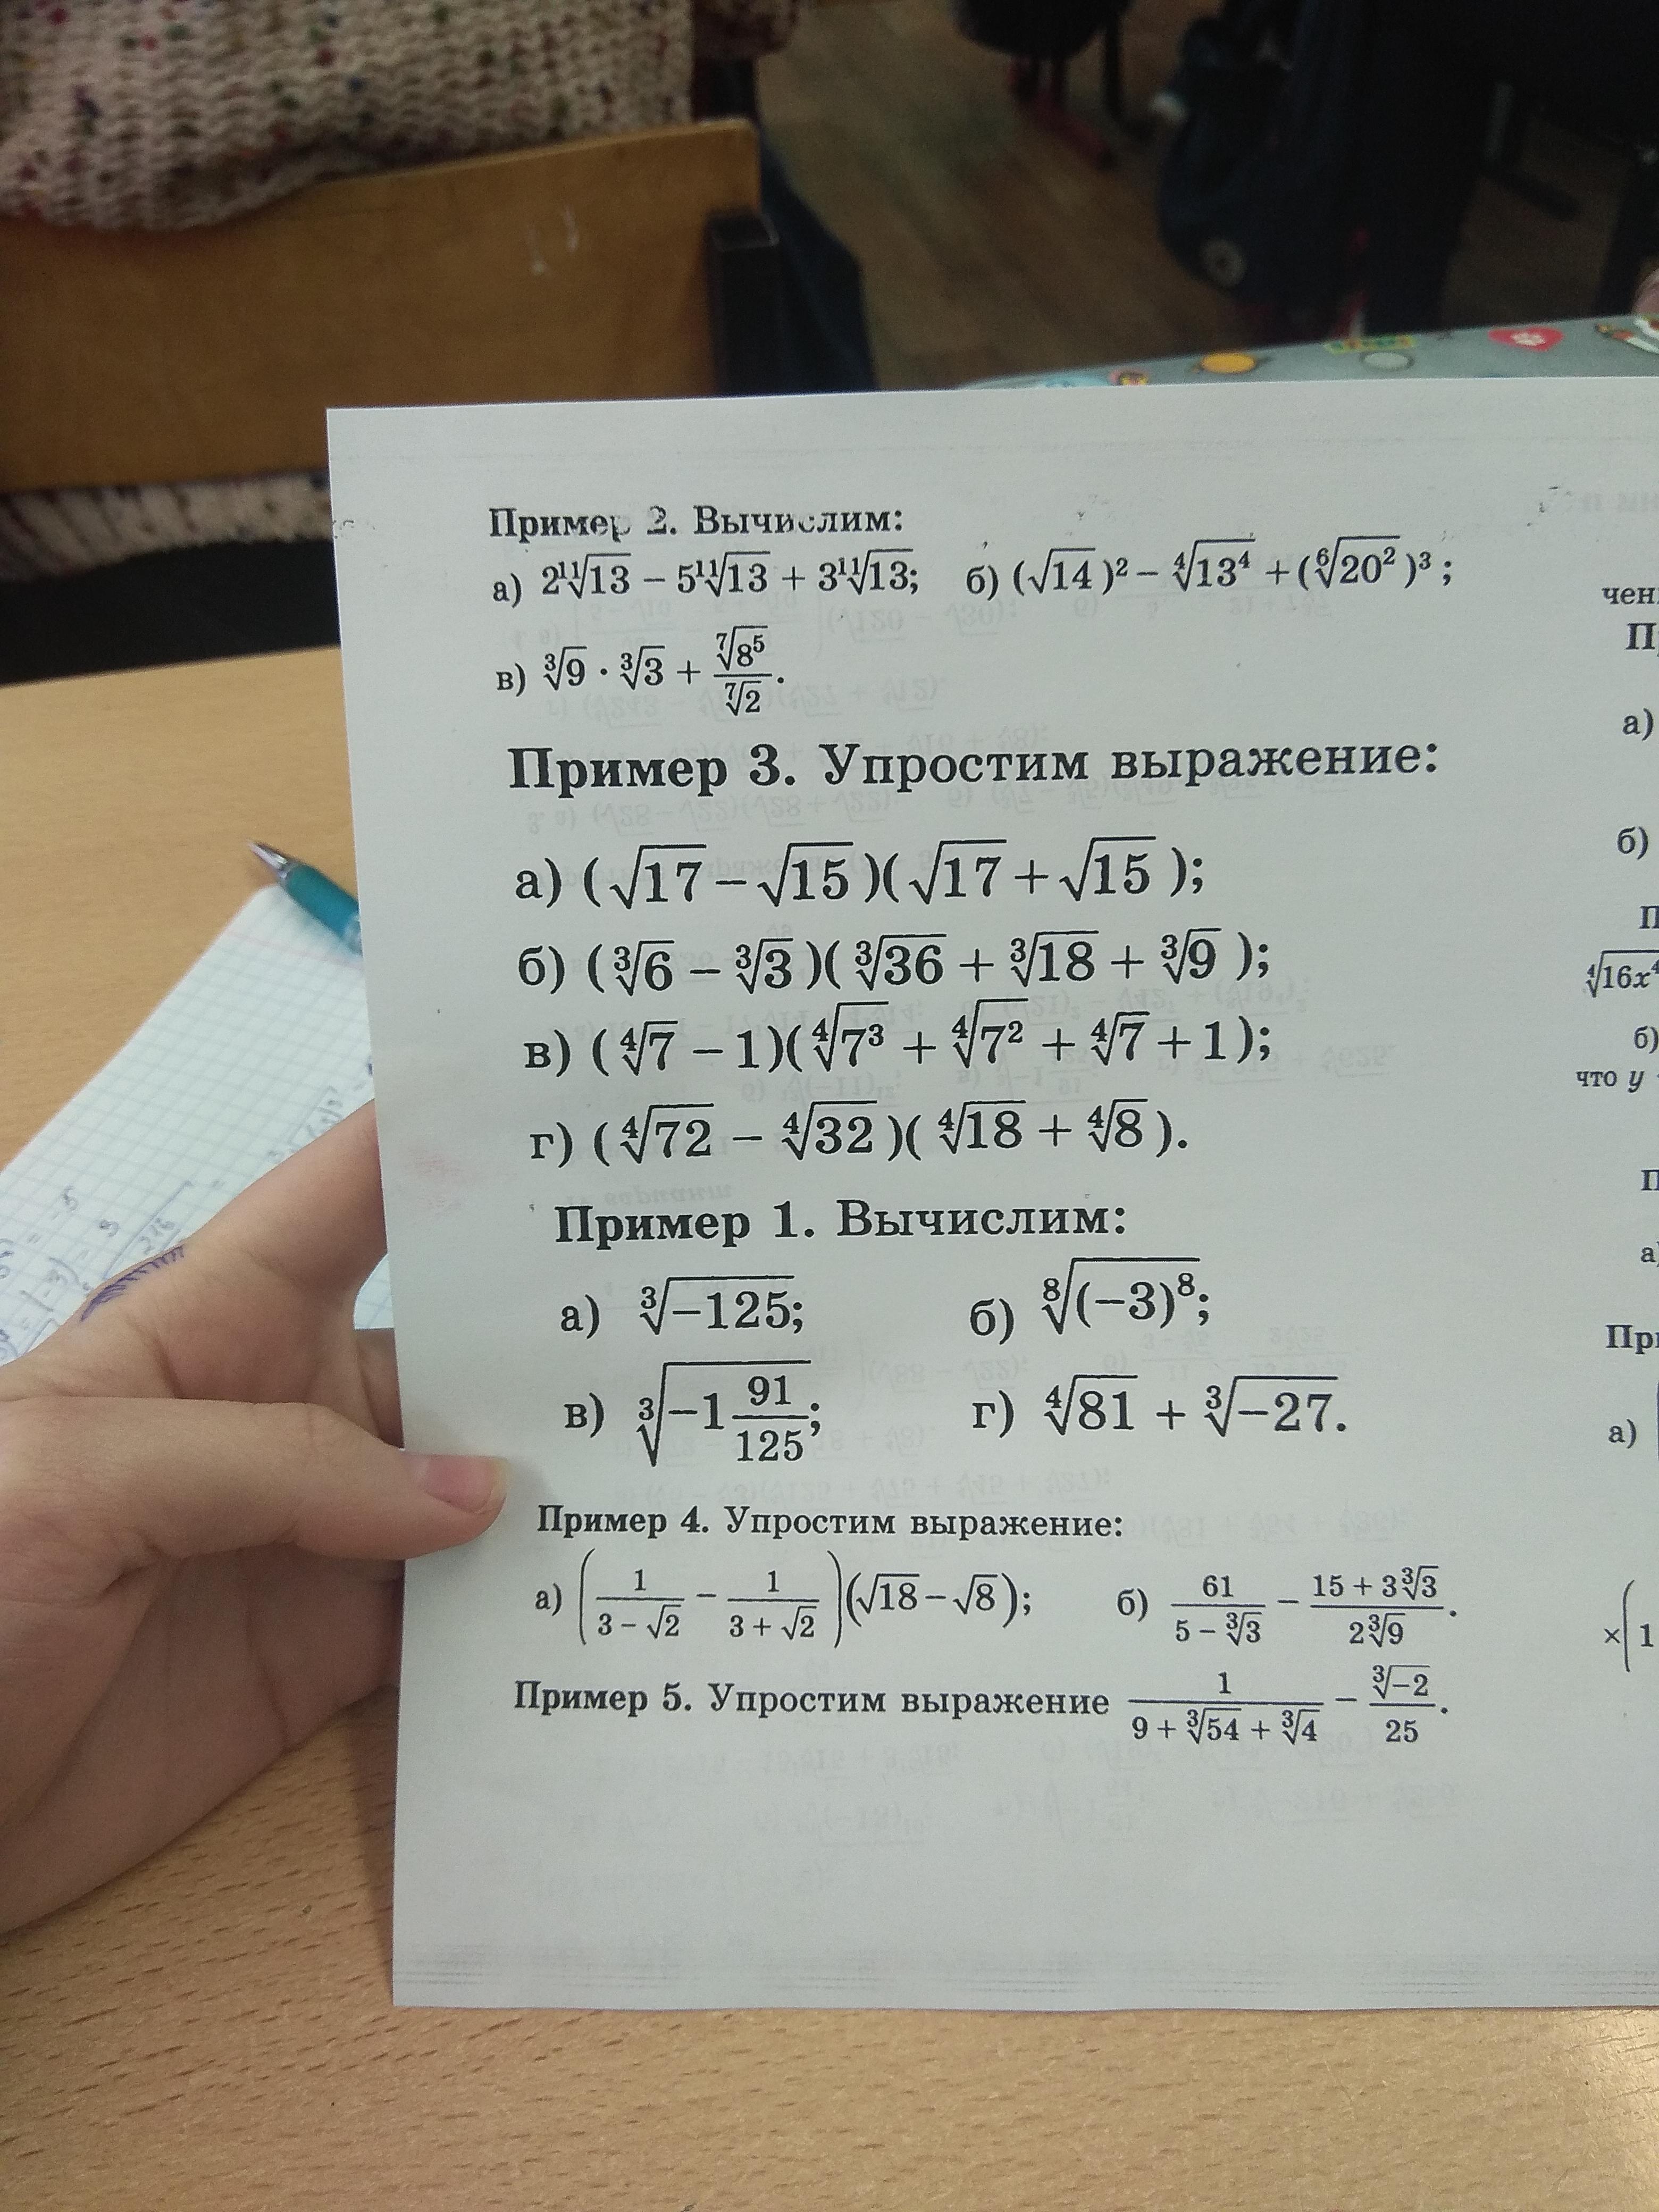 Пример 2. Вычислим:
а) 2¹¹√13 − 5¹¹√13 + 3¹¹√13; б) (√14)² − ⁴√13⁴ + (⁶√20²)³;
в) ³√9 · ³√3 + ⁷√8⁵/⁷√2.
Пример 3. Упростим выражение:
а) (√17 − √15)(√17 + √15);
б) (³√6 − ³√3)(³√36 + ³√18 + ³√9);
в) (⁴√7 − 1)(⁴√7³ + ⁴√7² + ⁴√7 + 1);
г) (⁴√72 − ⁴√32)(⁴√18 + ⁴√8).
Пример 1. Вычислим:
а) ³√−125; б) ⁸√(−3)⁸;
в) ³√−1 91/125; г) ⁴√81 + ³√−27.
Пример 4. Упростим выражение:
а) (1/(3 − √2) − 1/(3 + √2))(√18 − √8); б) 61/(5 − ³√3) − (15 + 3³√3)/(2³√9).
Пример 5. Упростим выражение 1/(9 + ³√54 + ³√4) − ³√−2/25.
а)
б)
⁴√16x⁴
б)
что y
а)
×(1